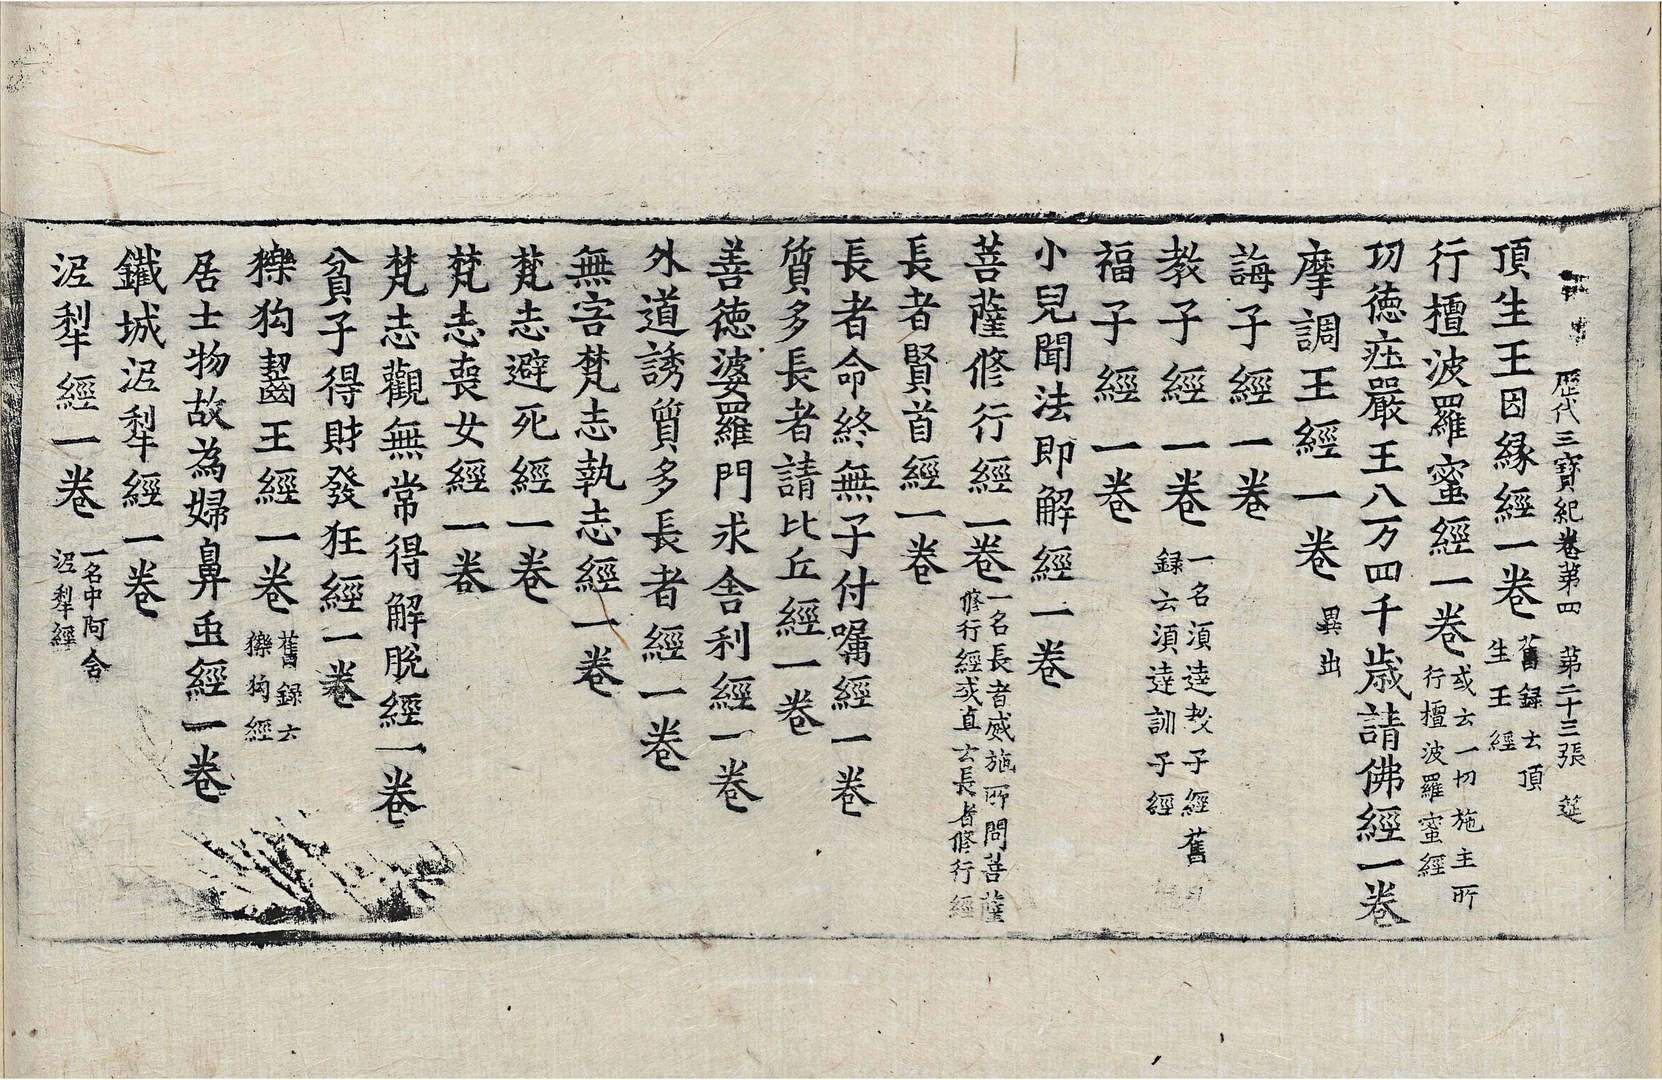 歷代三寶紀卷第四 第二十三張 筵
頂生王因緣經一卷 舊録云頂生王經
行檀波羅蜜經一卷 或云一切施主所行檀波羅蜜經
功德莊嚴王八万四千歲請佛經一卷
摩調王經一卷 異出
誨子經一卷
教子經一卷 一名須達教子經舊録云須達訓子經
福子經一卷
小兒聞法即解經一卷
菩薩修行經一卷 一名長者威施所問菩薩修行經或直云長者修行經
長者賢首經一卷
長者命終無子付囑經一卷
質多長者請比丘經一卷
善德婆羅門求舍利經一卷
外道誘質多長者經一卷
無害梵志執志經一卷
梵志避死經一卷
梵志喪女經一卷
梵志觀無常得解脫經一卷
貧子得財發狂經一卷
㹎狗齧王經一卷 舊録云㹎狗經
居士物故為婦鼻虫經一卷
鐵城泥犁經一卷
泥犁經一卷 一名中阿含泥犁經